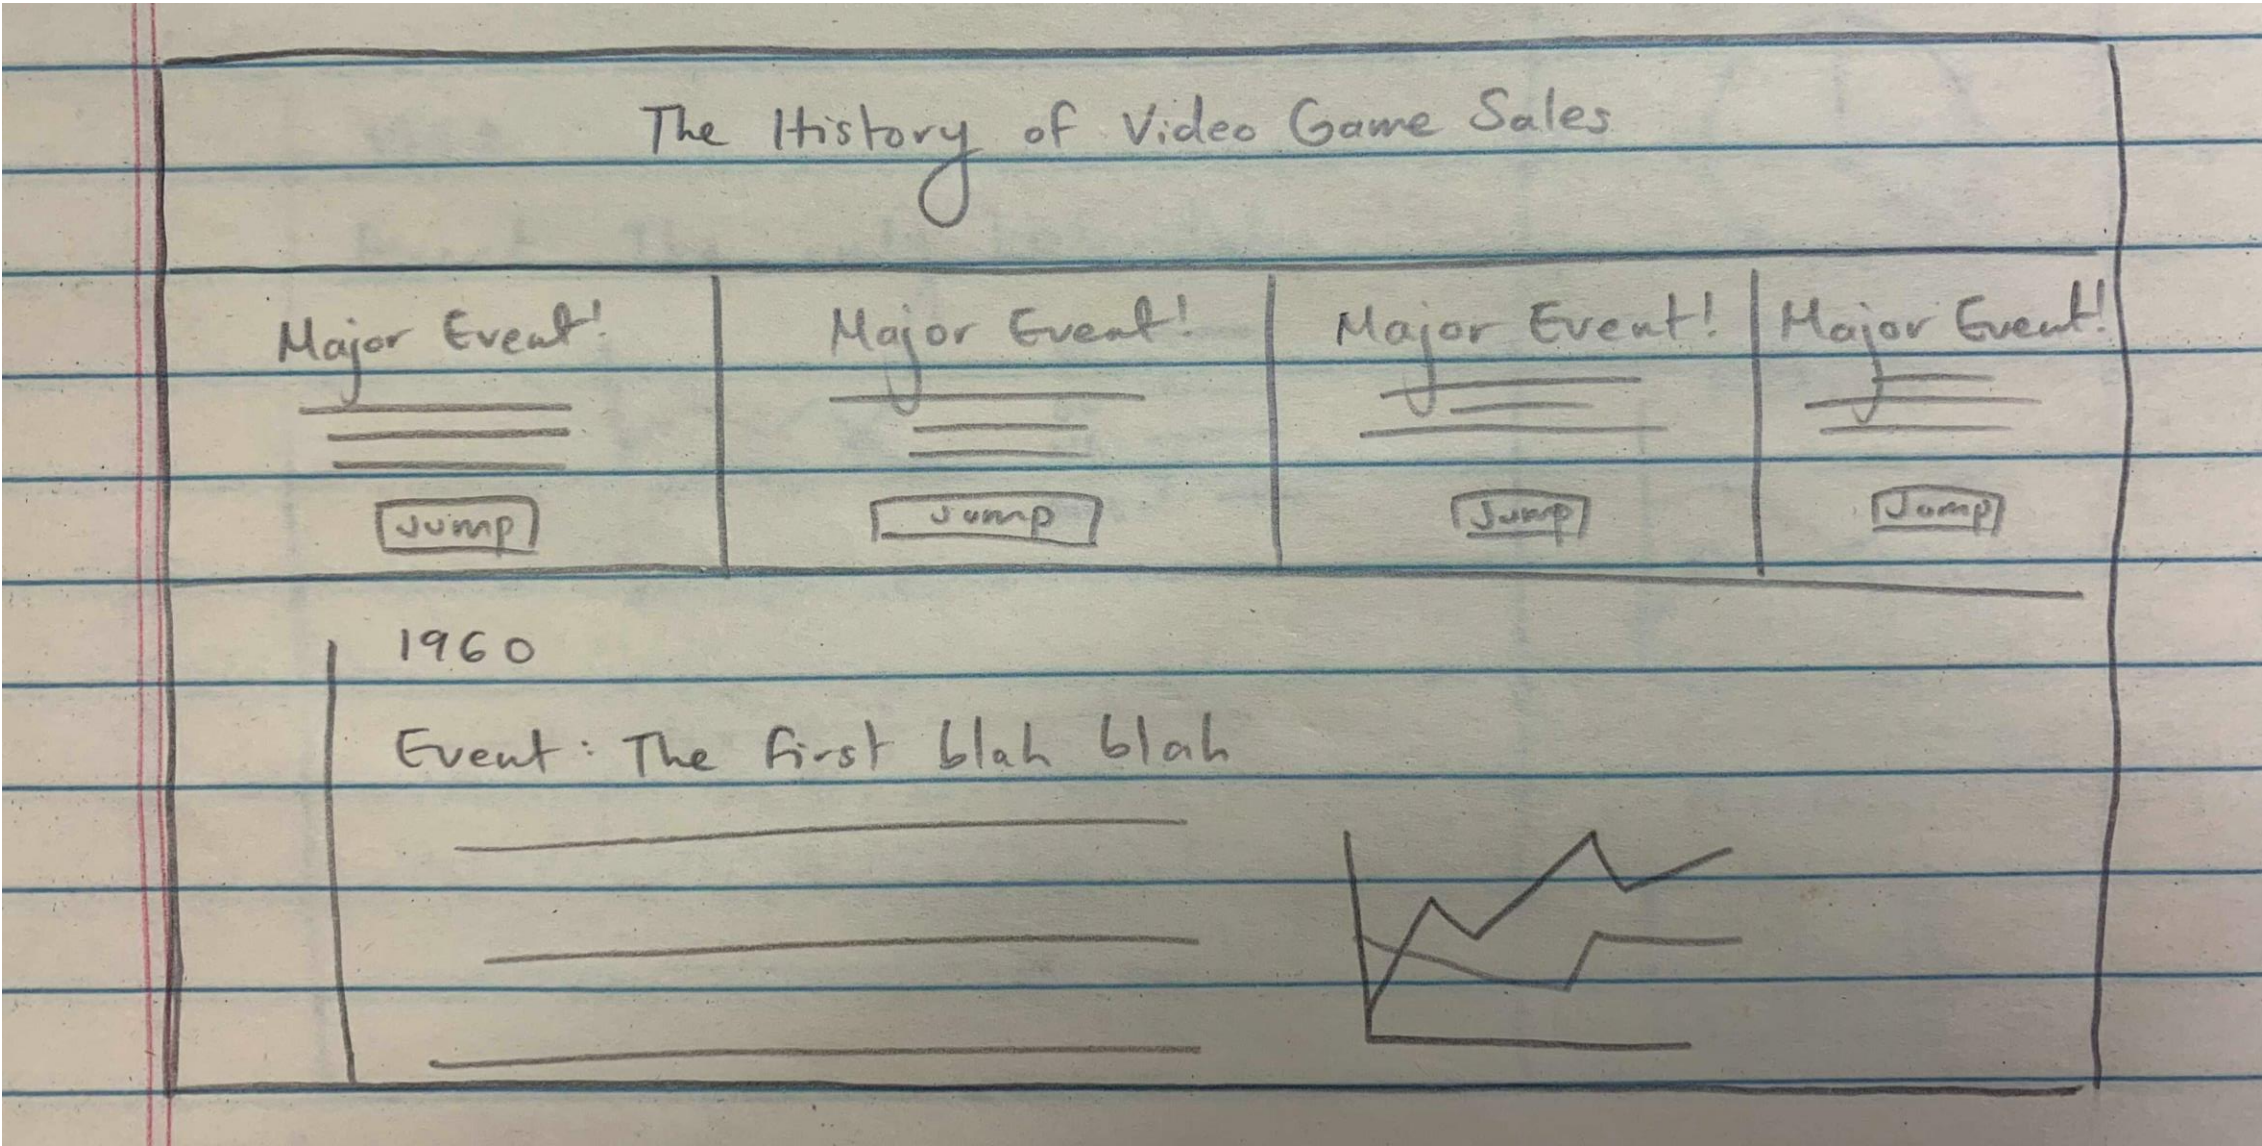 The History of Video Game Sales
Major Event!
Jump
Major Event!
Jump
Major Event!
Jump
Major Event!
Jump
1960
Event: The first blah blah